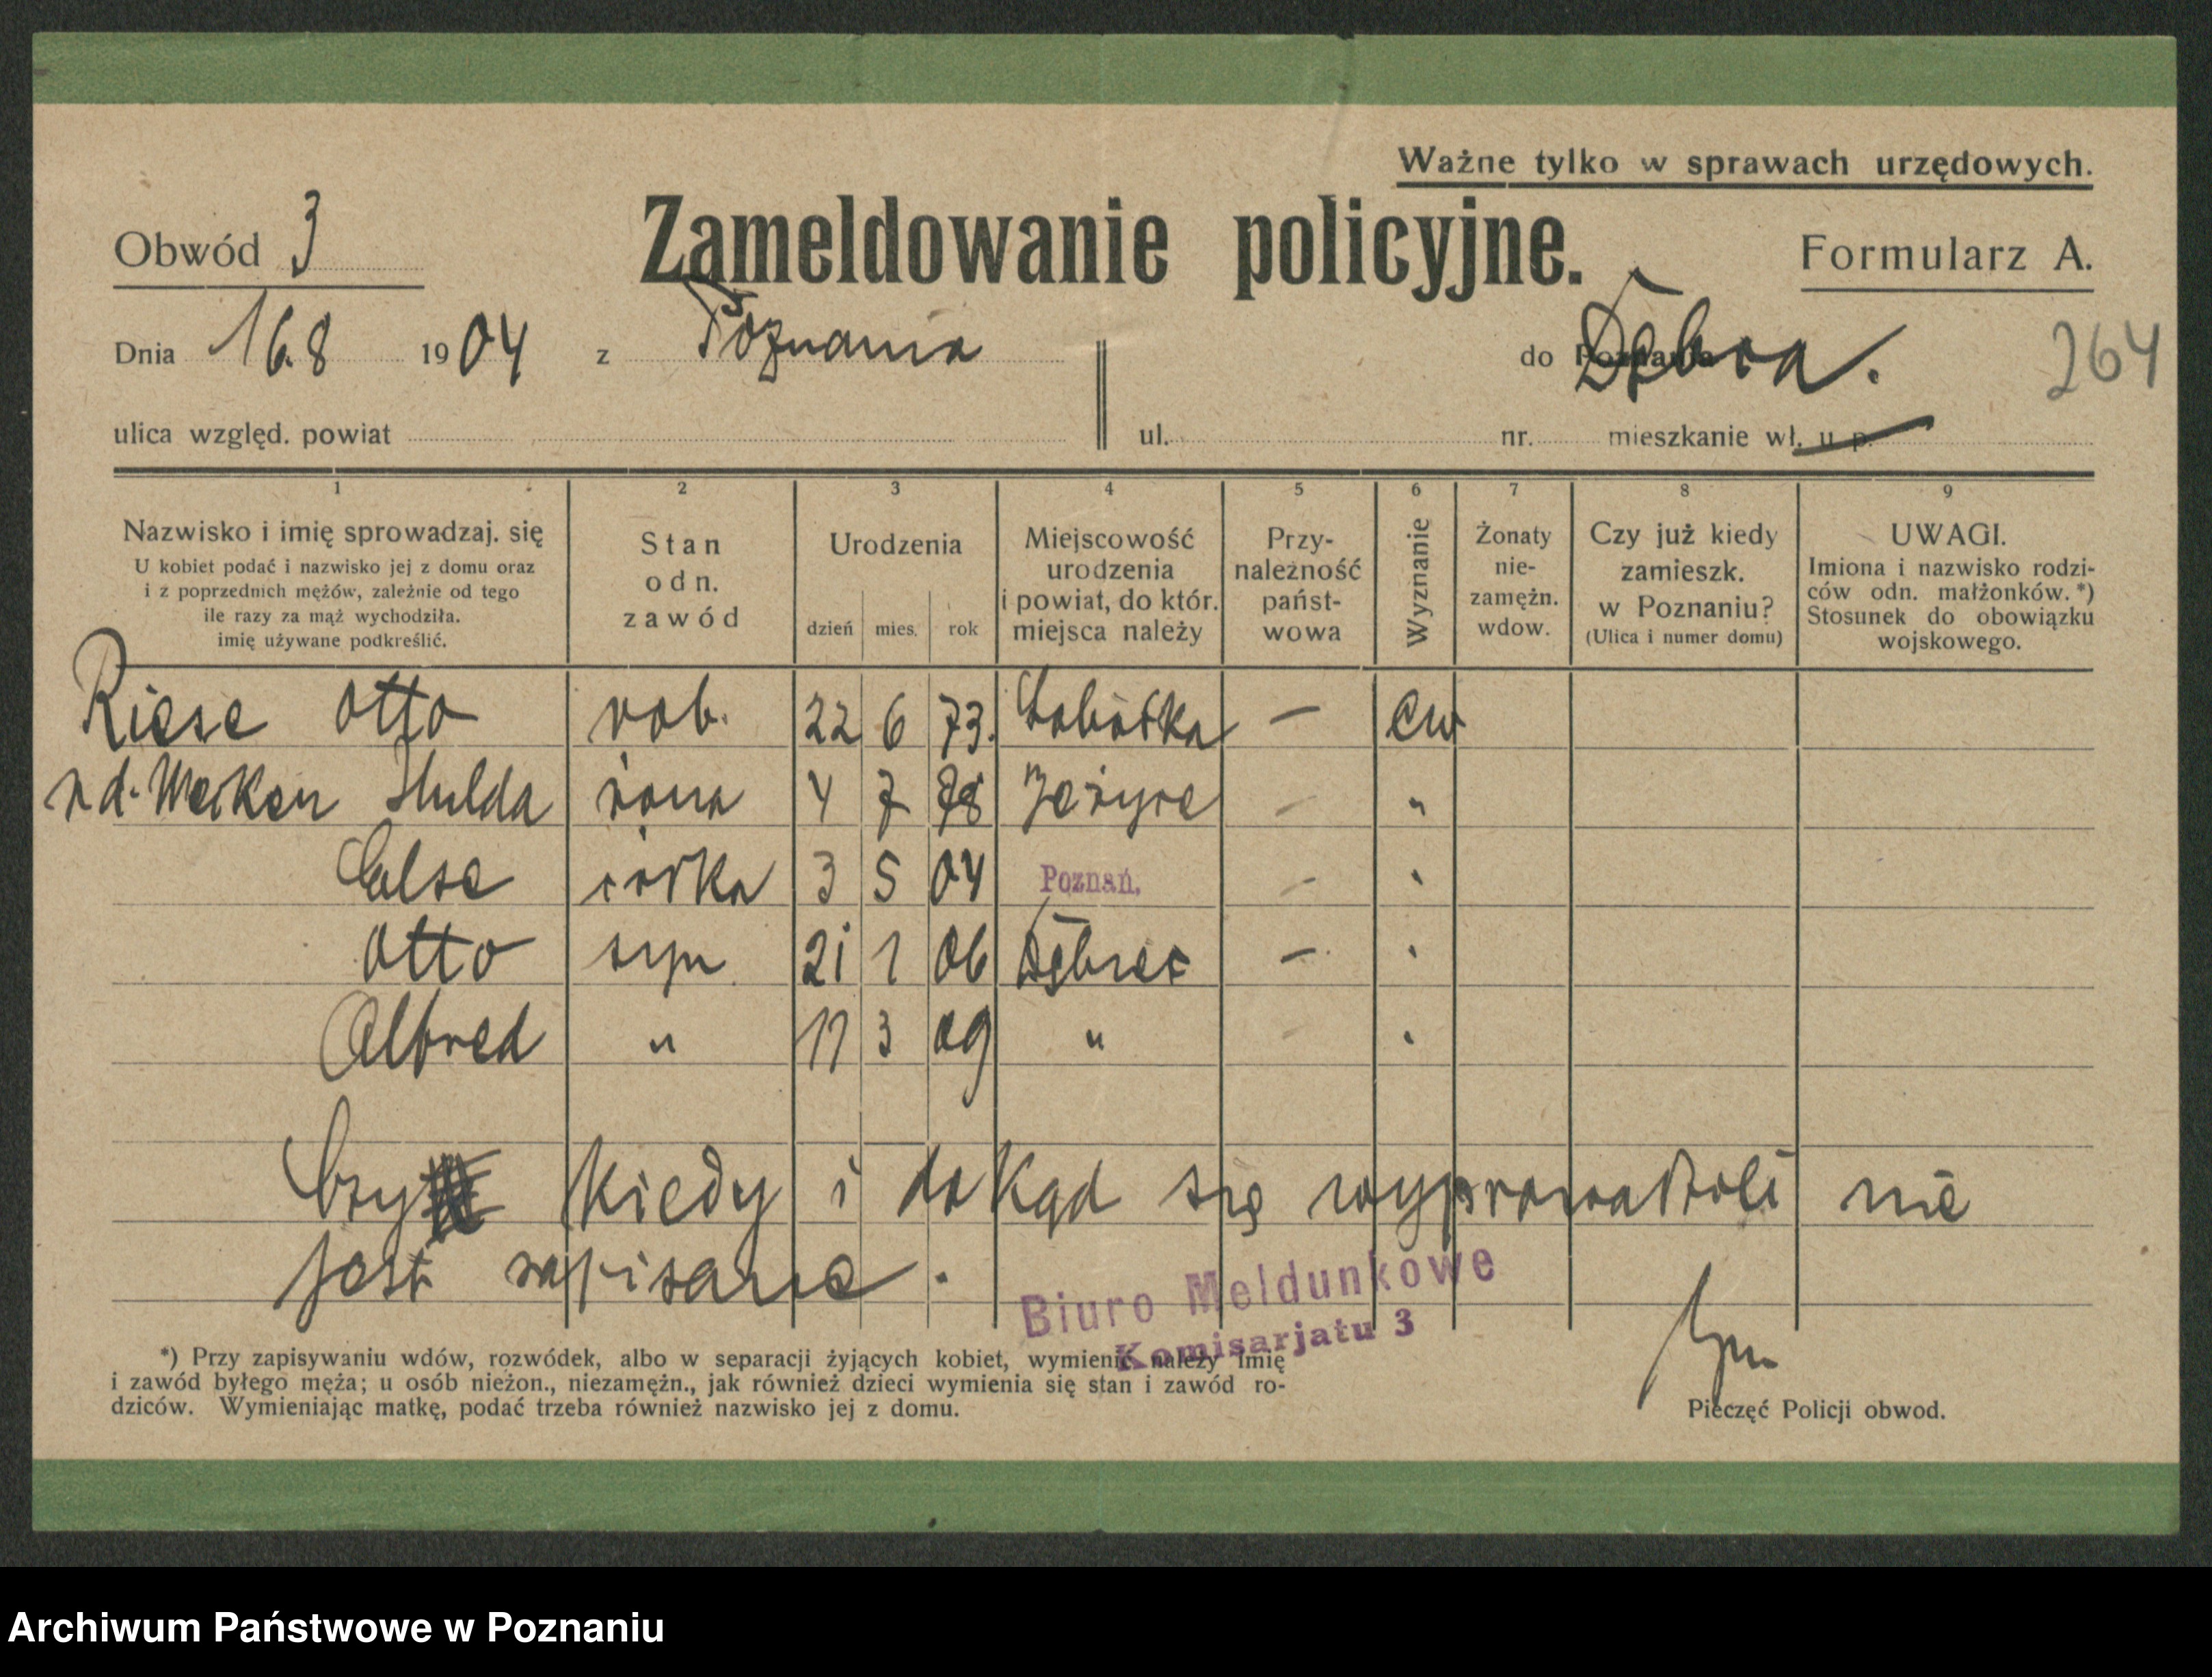 Ważne tylko w sprawach urzędowych.
Obwód 3
Zameldowanie policyjne.
Formularz A.
Dnia 16.8 1904 z Poznania
do Poznania Dębca. 264
ulica względ. powiat ul. nr. mieszkanie wł. u p.
1 2 3 4 5 6 7 8 9
Nazwisko i imię sprowadzaj. się
U kobiet podać i nazwisko jej z domu oraz
i z poprzednich mężów, zależnie od tego
ile razy za mąż wychodziła.
imię używane podkreślić.
Stan
odn.
zawód
Urodzenia
dzień mies. rok
Miejscowość
urodzenia
i powiat, do któr.
miejsca należy
Przy-
należność
państ-
wowa
Wyznanie
Żonaty
nie-
zamężn.
wdow.
Czy już kiedy
zamieszk.
w Poznaniu?
(Ulica i numer domu)
UWAGI.
Imiona i nazwisko rodzi-
ców odn. małżonków.*)
Stosunek do obowiązku
wojskowego.
Riese Otto rob. 22 6 73. Sobótka — ew
z d. Hulda żona 4 7 78 Jeżyce — "
Else córka 3 5 04 Poznań. — "
Otto syn 21 1 06 Dębiec — "
Alfred " 11 3 09 " - "
Czy kiedy i dokąd się wyprowadzili nie
jest zapisane.
Biuro Meldunkowe
Komisarjatu 3
*) Przy zapisywaniu wdów, rozwódek, albo w separacji żyjących kobiet, wymienić należy imię
i zawód byłego męża; u osób nieżon., niezamężn., jak również dzieci wymienia się stan i zawód ro-
dziców. Wymieniając matkę, podać trzeba również nazwisko jej z domu.
Pieczęć Policji obwod.
Archiwum Państwowe w Poznaniu